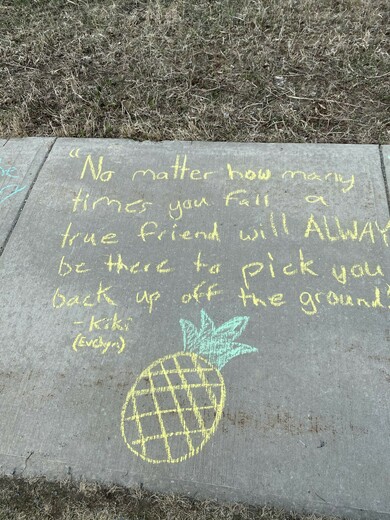 "No matter how many
times you fall a
true friend will ALWAY
be there to pick you
back up off the ground"
- Kiki
(Evelyn)